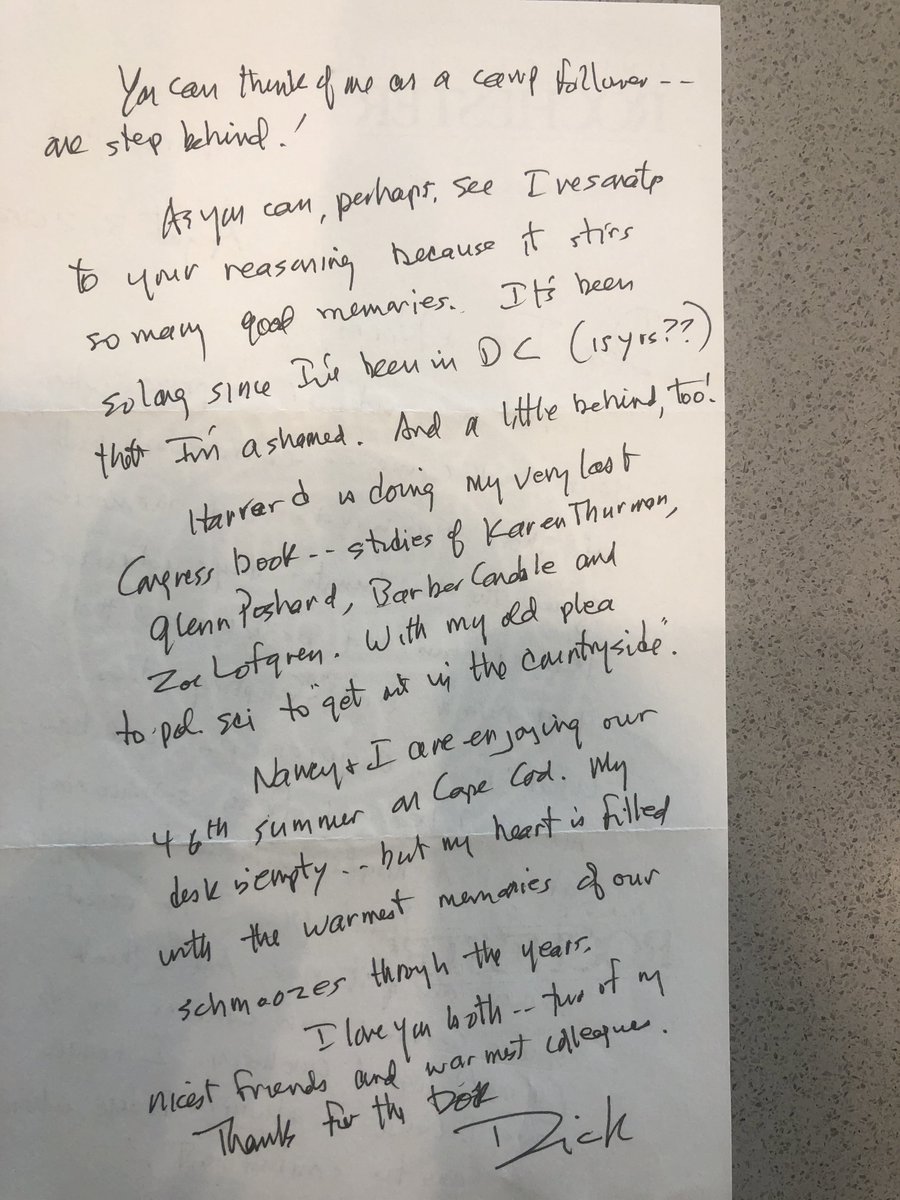 You can think of me as a camp follower --
one step behind!
As you can, perhaps, see I resonate
to your reasoning because it stirs
so many good memories. It's been
so long since I've been in DC (15 yrs??)
that I'm ashamed. And a little behind, too!
Harvard is doing my very last
Congress book -- studies of Karen Thurman,
Glenn Poshard, Barber Conable and
Zoe Lofgren. With my old plea
to pol. sci to "get out in the countryside".
Nancy & I are enjoying our
46th summer on Cape Cod. My
desk is empty -- but my heart is filled
with the warmest memories of our
schmoozes through the years.
I love you both -- two of my
nicest friends and warmest colleagues.
Thanks for the book
Dick